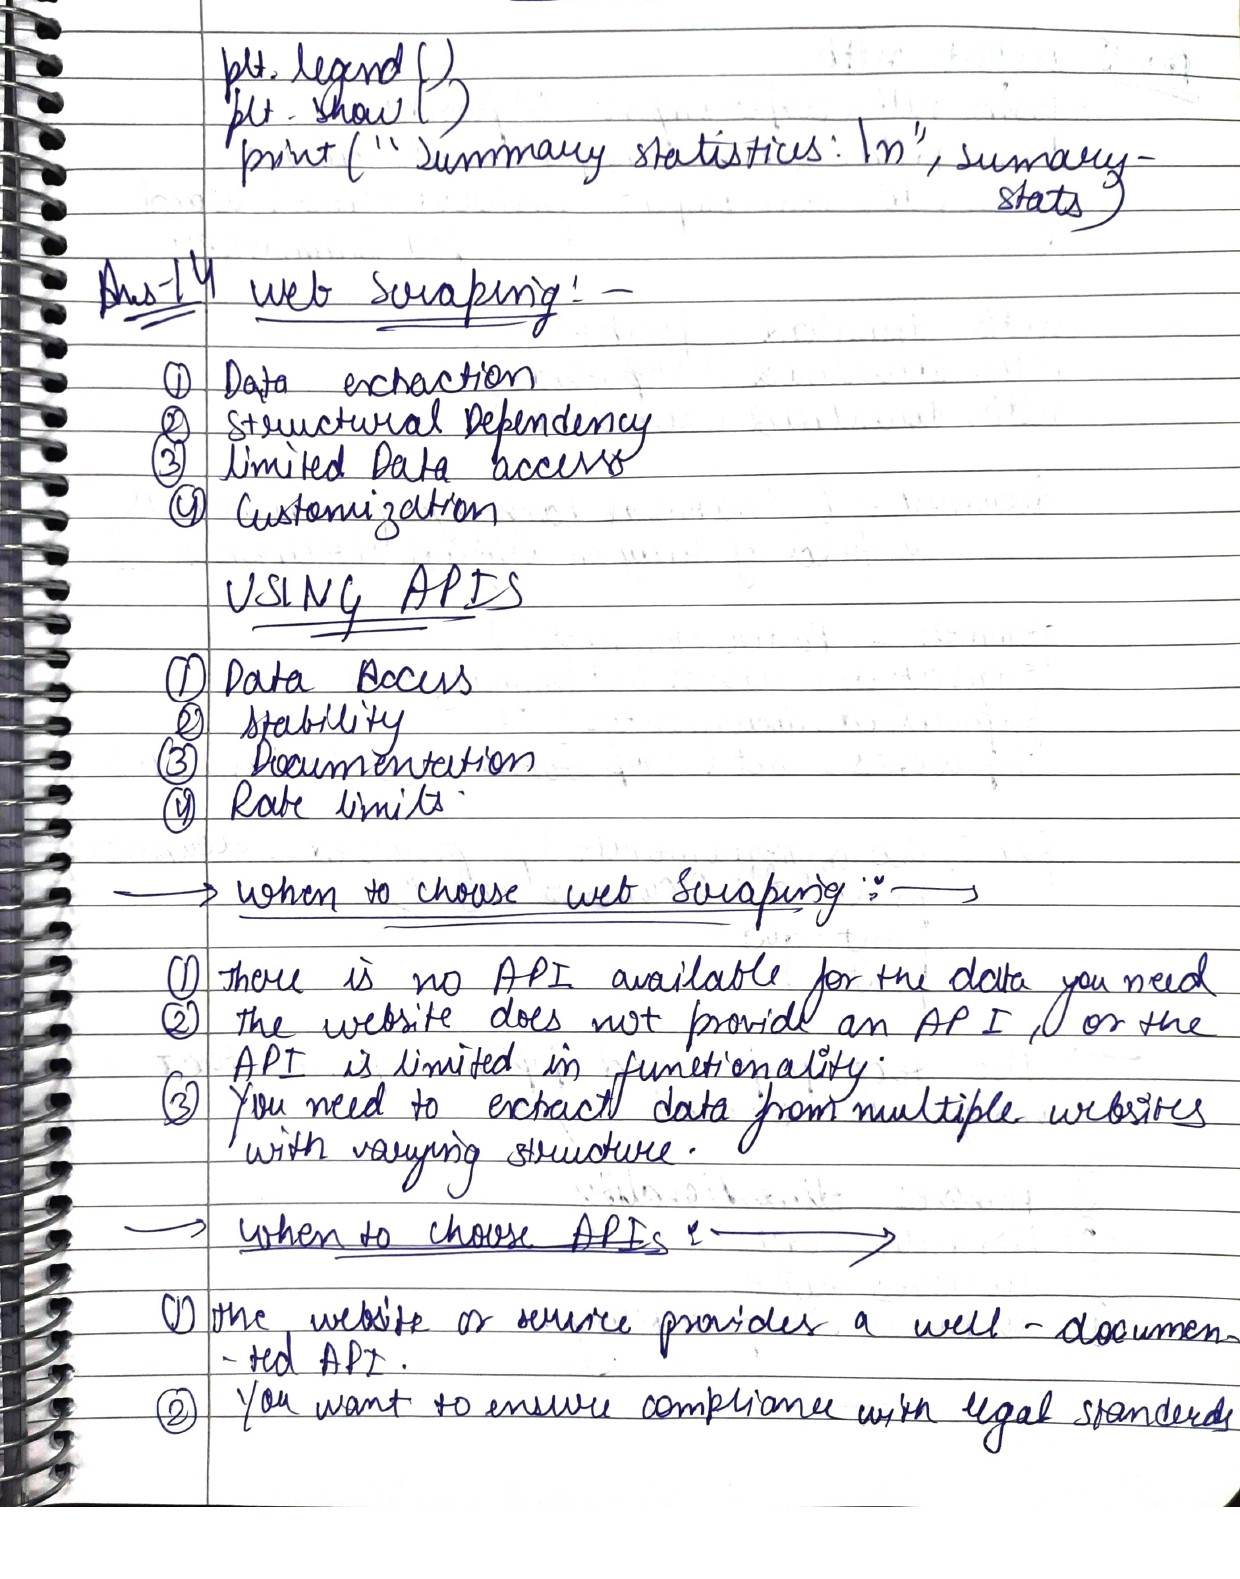 plt. legend()
plt. show()
print("Summary statistics: \n", sumary-
stats)
Ans-14 web Scraping: -
① Data extraction
② Structural Dependency
③ limited Data access
④ Customization
USING APIS
① Data Access
② Stability
③ Documentation
④ Rate limits.
→ when to choose web Scraping: →
① there is no API available for the data you need
② the website does not provide an API, or the
API is limited in functionality.
③ You need to extract data from multiple websites
with varying structure.
→ when to choose APIs: →
① the website or service provides a well-documen-
-ted API.
② You want to ensure compliance with legal standerds